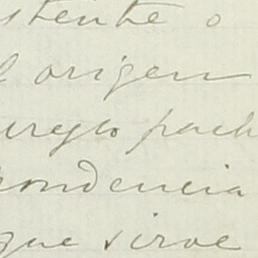 stente o
l origen
ureglo pach
pondencia
que sirve